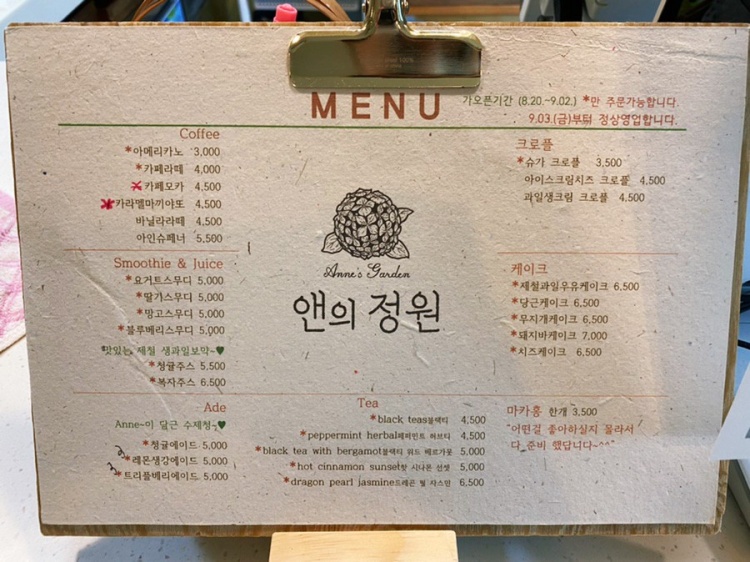 MENU
가오픈기간 (8.20.~9.02.) *만 주문가능합니다.
9.03.(금)부터 정상영업합니다.
Coffee
*아메리카노 3,000
*카페라떼 4,000
*카페모카 4,500
*카라멜마끼아또 4,500
바닐라라떼 4,500
아인슈페너 5,500
Smoothie & Juice
*요거트스무디 5,000
*딸기스무디 5,000
*망고스무디 5,000
*블루베리스무디 5,000
맛있는 제철 생과일보약~♥
*청귤주스 5,500
*복자주스 6,500
Ade
Anne~이 달근 수제청~♥
*청귤에이드 5,000
*레몬생강에이드 5,000
*트리플베리에이드 5,000
Anne's Garden
앤의 정원
Tea
*black teas블랙티 4,500
*peppermint herbal페퍼민트 허브티 4,500
*black tea with bergamot블랙티 위드 베르가못 5,000
*hot cinnamon sunset핫 시나몬 선셋 5,000
*dragon pearl jasmine드래곤 펄 자스민 6,500
크로플
*슈가 크로플 3,500
아이스크림치즈 크로플 4,500
과일생크림 크로플 4,500
케이크
*제철과일우유케이크 6,500
*당근케이크 6,500
*무지개케이크 6,500
*돼지바케이크 7,000
*치즈케이크 6,500
마카롱 한개 3,500
"어떤걸 좋아하실지 몰라서
다 준비 했답니다~^^"